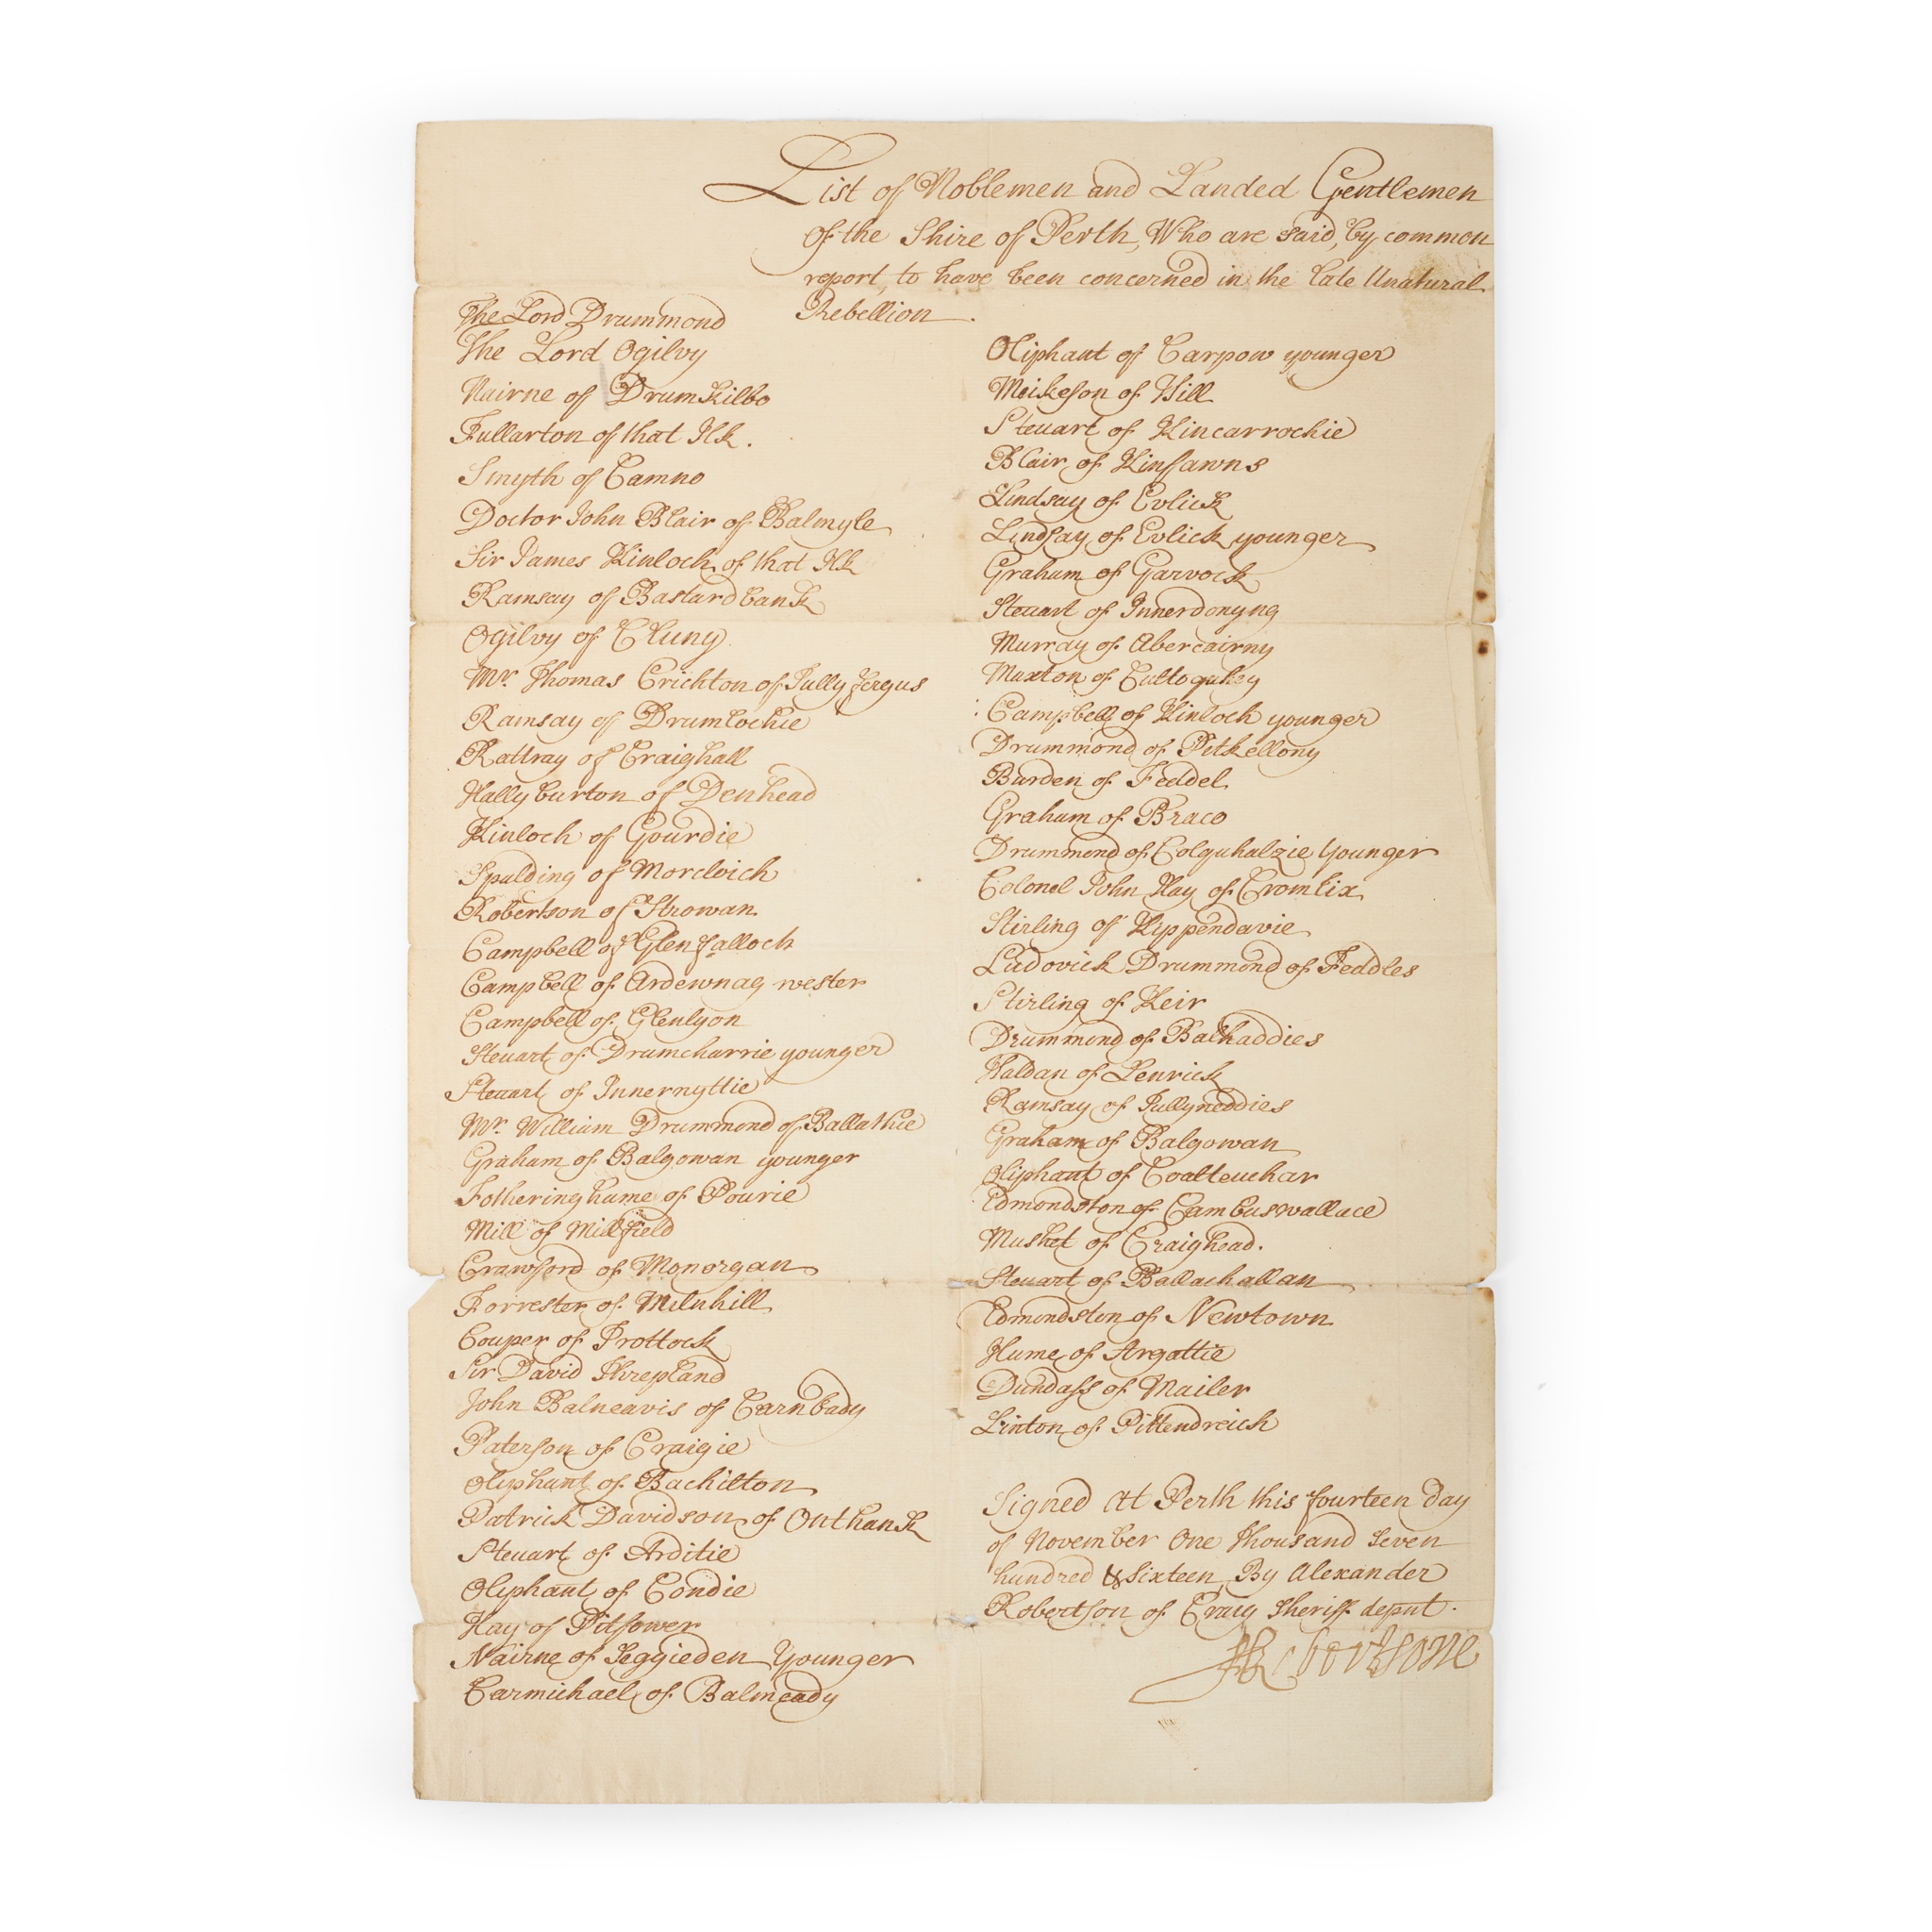 List of Noblemen and Landed Gentlemen
Of the Shire of Perth, Who are said, by common
report, to have been concerned in the late Unatural
Rebellion.
The Lord Drummond
The Lord Ogilvy
Nairne of Drumkilbo
Fullarton of that Ilk.
Smyth of Camno
Doctor John Blair of Balmyle
Sir James Kinloch of that Ilk
Ramsay of Bastardbank
Ogilvy of Cluny
Mr. Thomas Crichton of Tullyfergus
Ramsay of Drumlochie
Rattray of Craighall
Hallyburton of Denhead
Kinloch of Gourdie
Spalding of
Robertson of Strowan
Campbell of Glenfalloch
Campbell of Ardewnag wester
Campbell of Glenlyon
Steuart of Drumcharrie younger
Steuart of Innernyttie
Mr. William Drummond of Ballathie
Graham of Balgowan younger
Fotheringhame of Pourie
Mill of Millfield
Crawford of Monorgan
Forrester of Milnhill
Couper of Trottock
Sir David Threpland
John Balneavis of Carnbady
Paterson of Craigie
Oliphant of Bachilton
Patrick Davidson of Onthank
Steuart of Arditie
Oliphant of Condie
Hay of Pitfower
Nairne of Seggieden Younger
Carmichael of Balmeady
Oliphant of Carpow younger
Meikeson of Hill
Steuart of Kincarrochie
Blair of Kinfawns
Lindsay of Evlick
Lindsay of Evlick younger
Graham of Garvock
Steuart of Innerdonyng
Murray of Abercairny
Maxton of Cultoquhey
Campbell of Kinloch younger
Drummond of Pitkellony
Burden of Feddel
Graham of Braco
Drummond of Colquhalzie Younger
Colonel John Hay of Cromlix
Stirling of Kippendavie
Ludovick Drummond of Feddles
Stirling of Keir
Drummond of Balhaddies
Haldan of Lenrick
Ramsay of Tullyneddies
Graham of Balgowan
Oliphant of Coalteuchar
Edmondston of Cambuswallace
Mushet of Craighead.
Steuart of Ballachallan
Edmondston of Newtown
Hume of Argattie
Dundass of Mailer
Linton of Pittendreich
Signed At Perth this fourteen Day
of November One thousand Seven
hundred & Sixteen By Alexander
Robertson of Craig Sheriff deput.
Robertsone